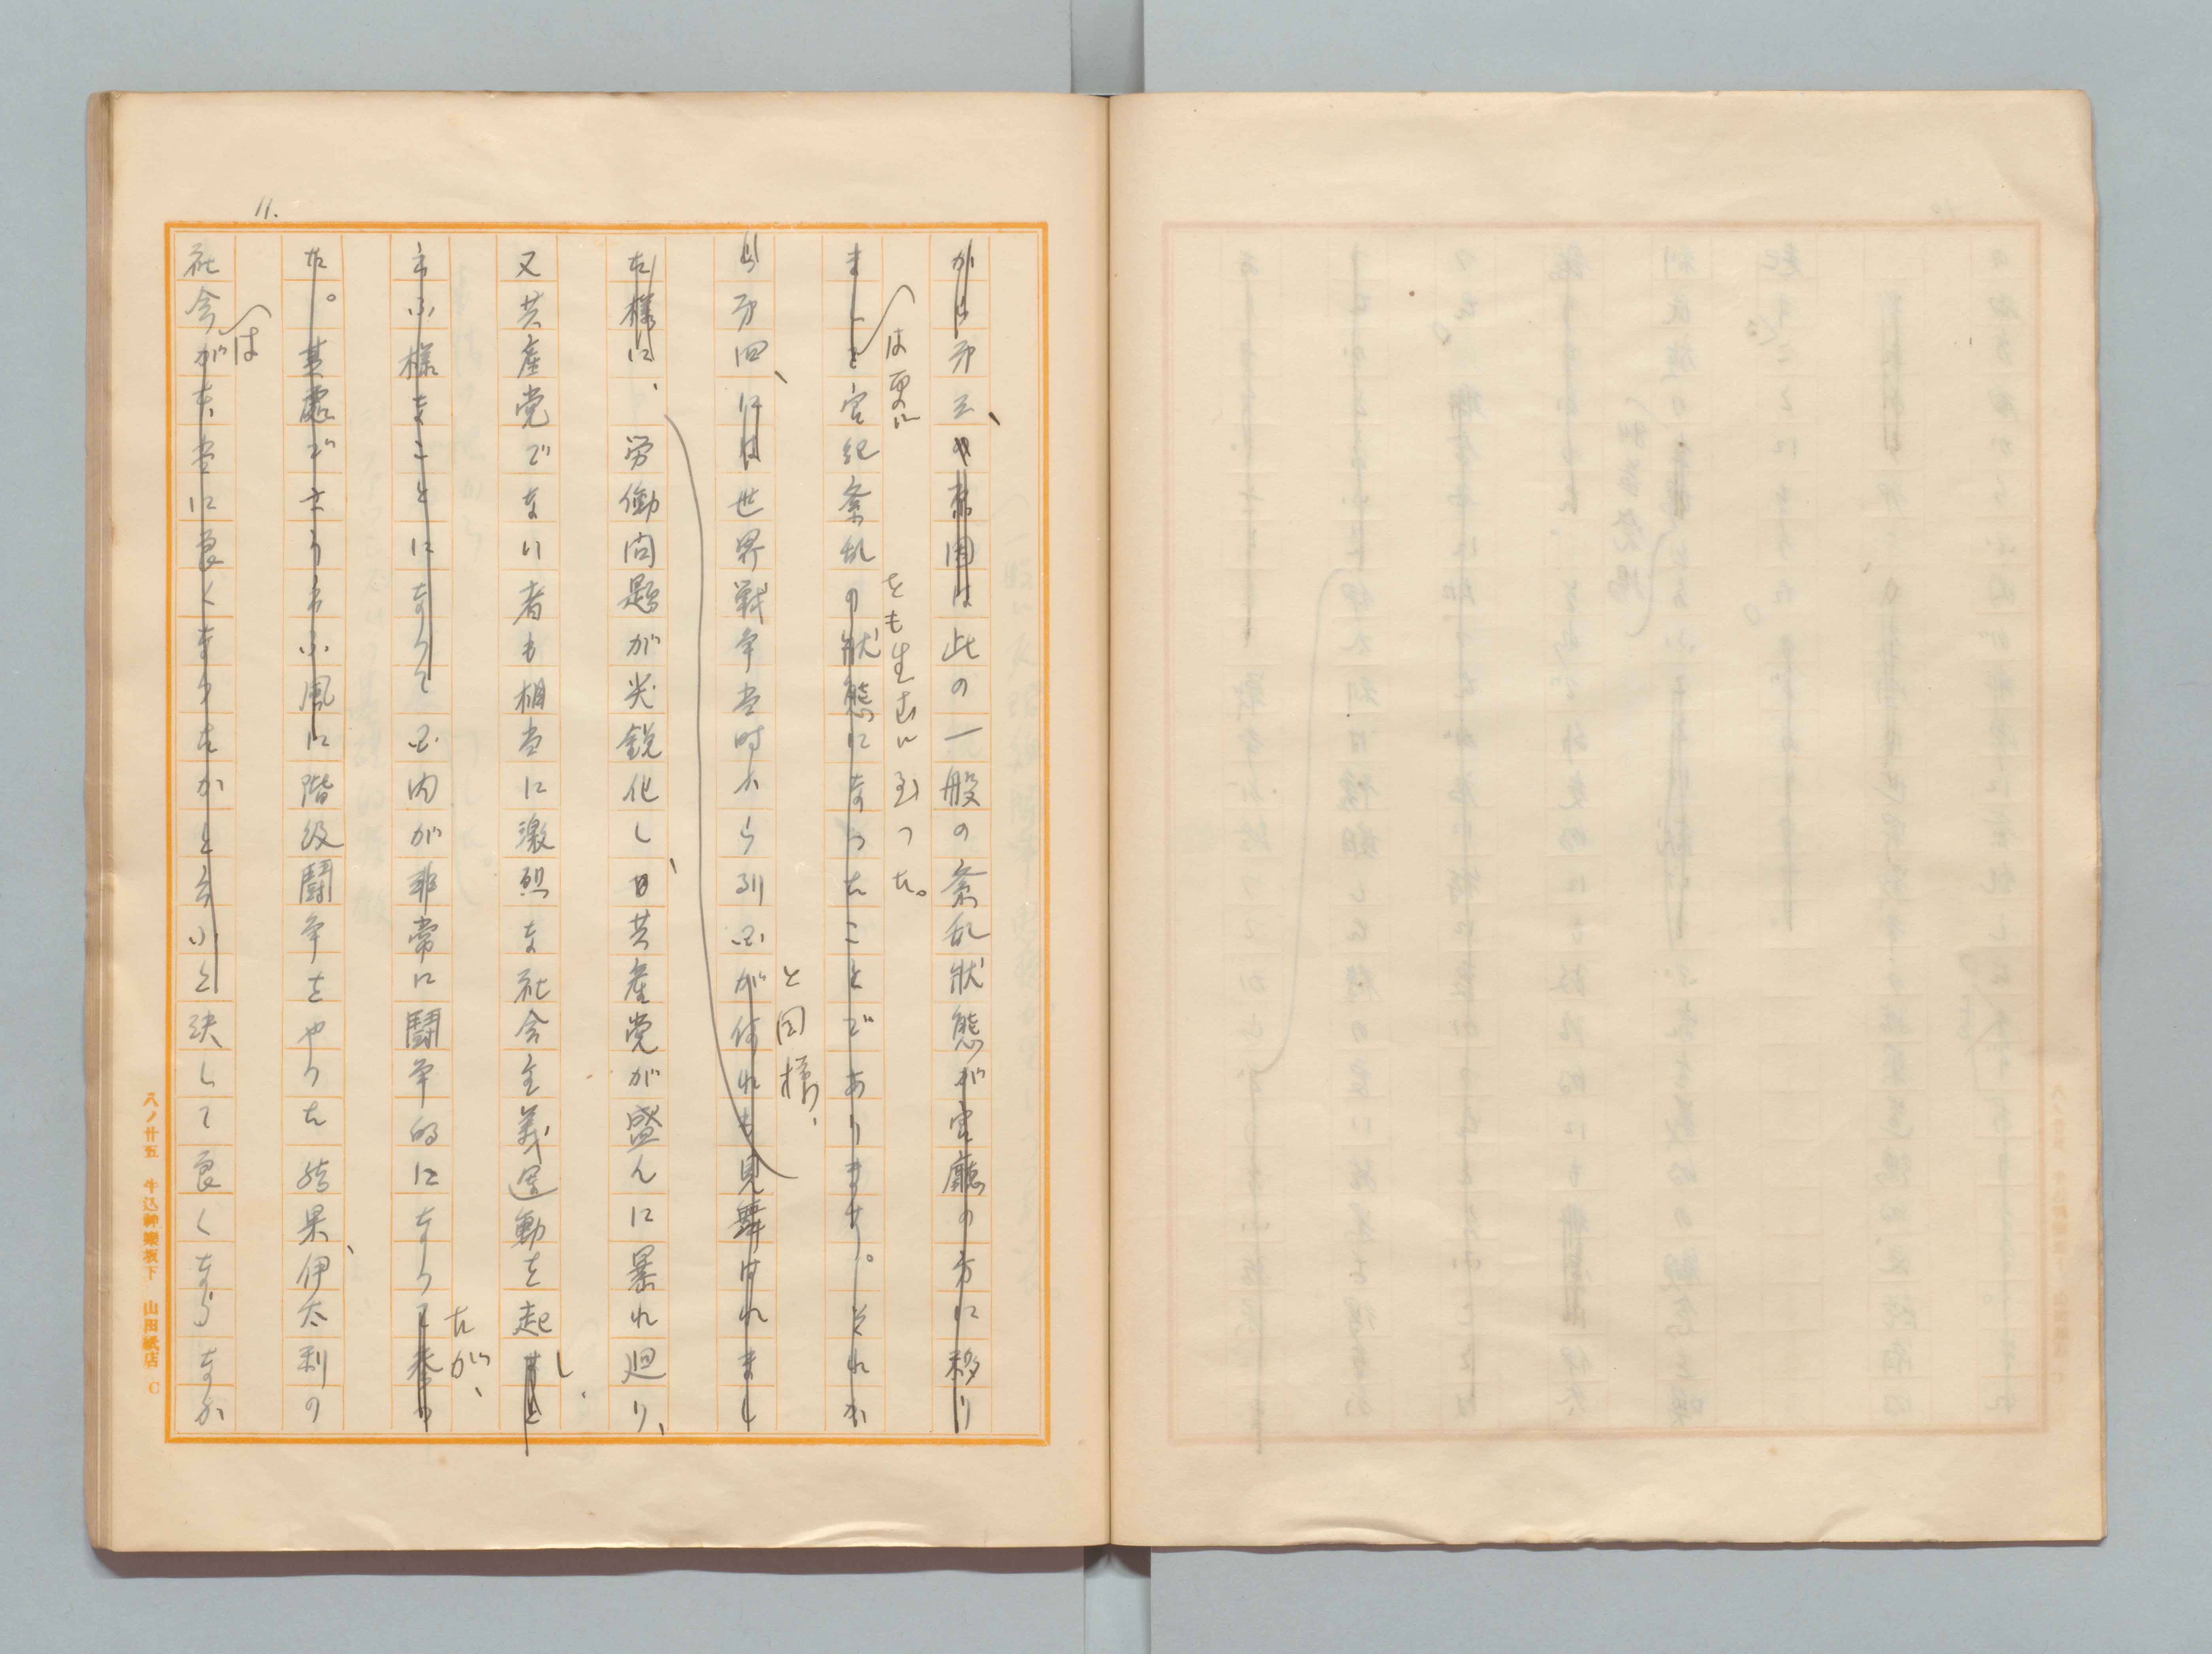 11.
がもう一つの原因は此の一般の紊乱狀態が官廳の方に移り
は更に
をも生むに至つた。
まして官紀紊乱の狀態になつたことであります。それか
ら第四、には世界戦争当時から列国が何れも見舞はれまし
と同様、
た様に、労働問題が尖鋭化し、共産党が盛んに暴れ廻り、
又共産党でない者も相当に激烈な社会主義運動を起すと
し、
云ふ様なことになつて国内が非常に闘争的になつて参つ
たが、
た。其處でさう云ふ風に階級闘争をやつた結果、伊太利の
は
社会が本当に良くなつたかと云ふと決して良くならなか
八ノ廿五 牛込神樂坂下 山田紙店 C